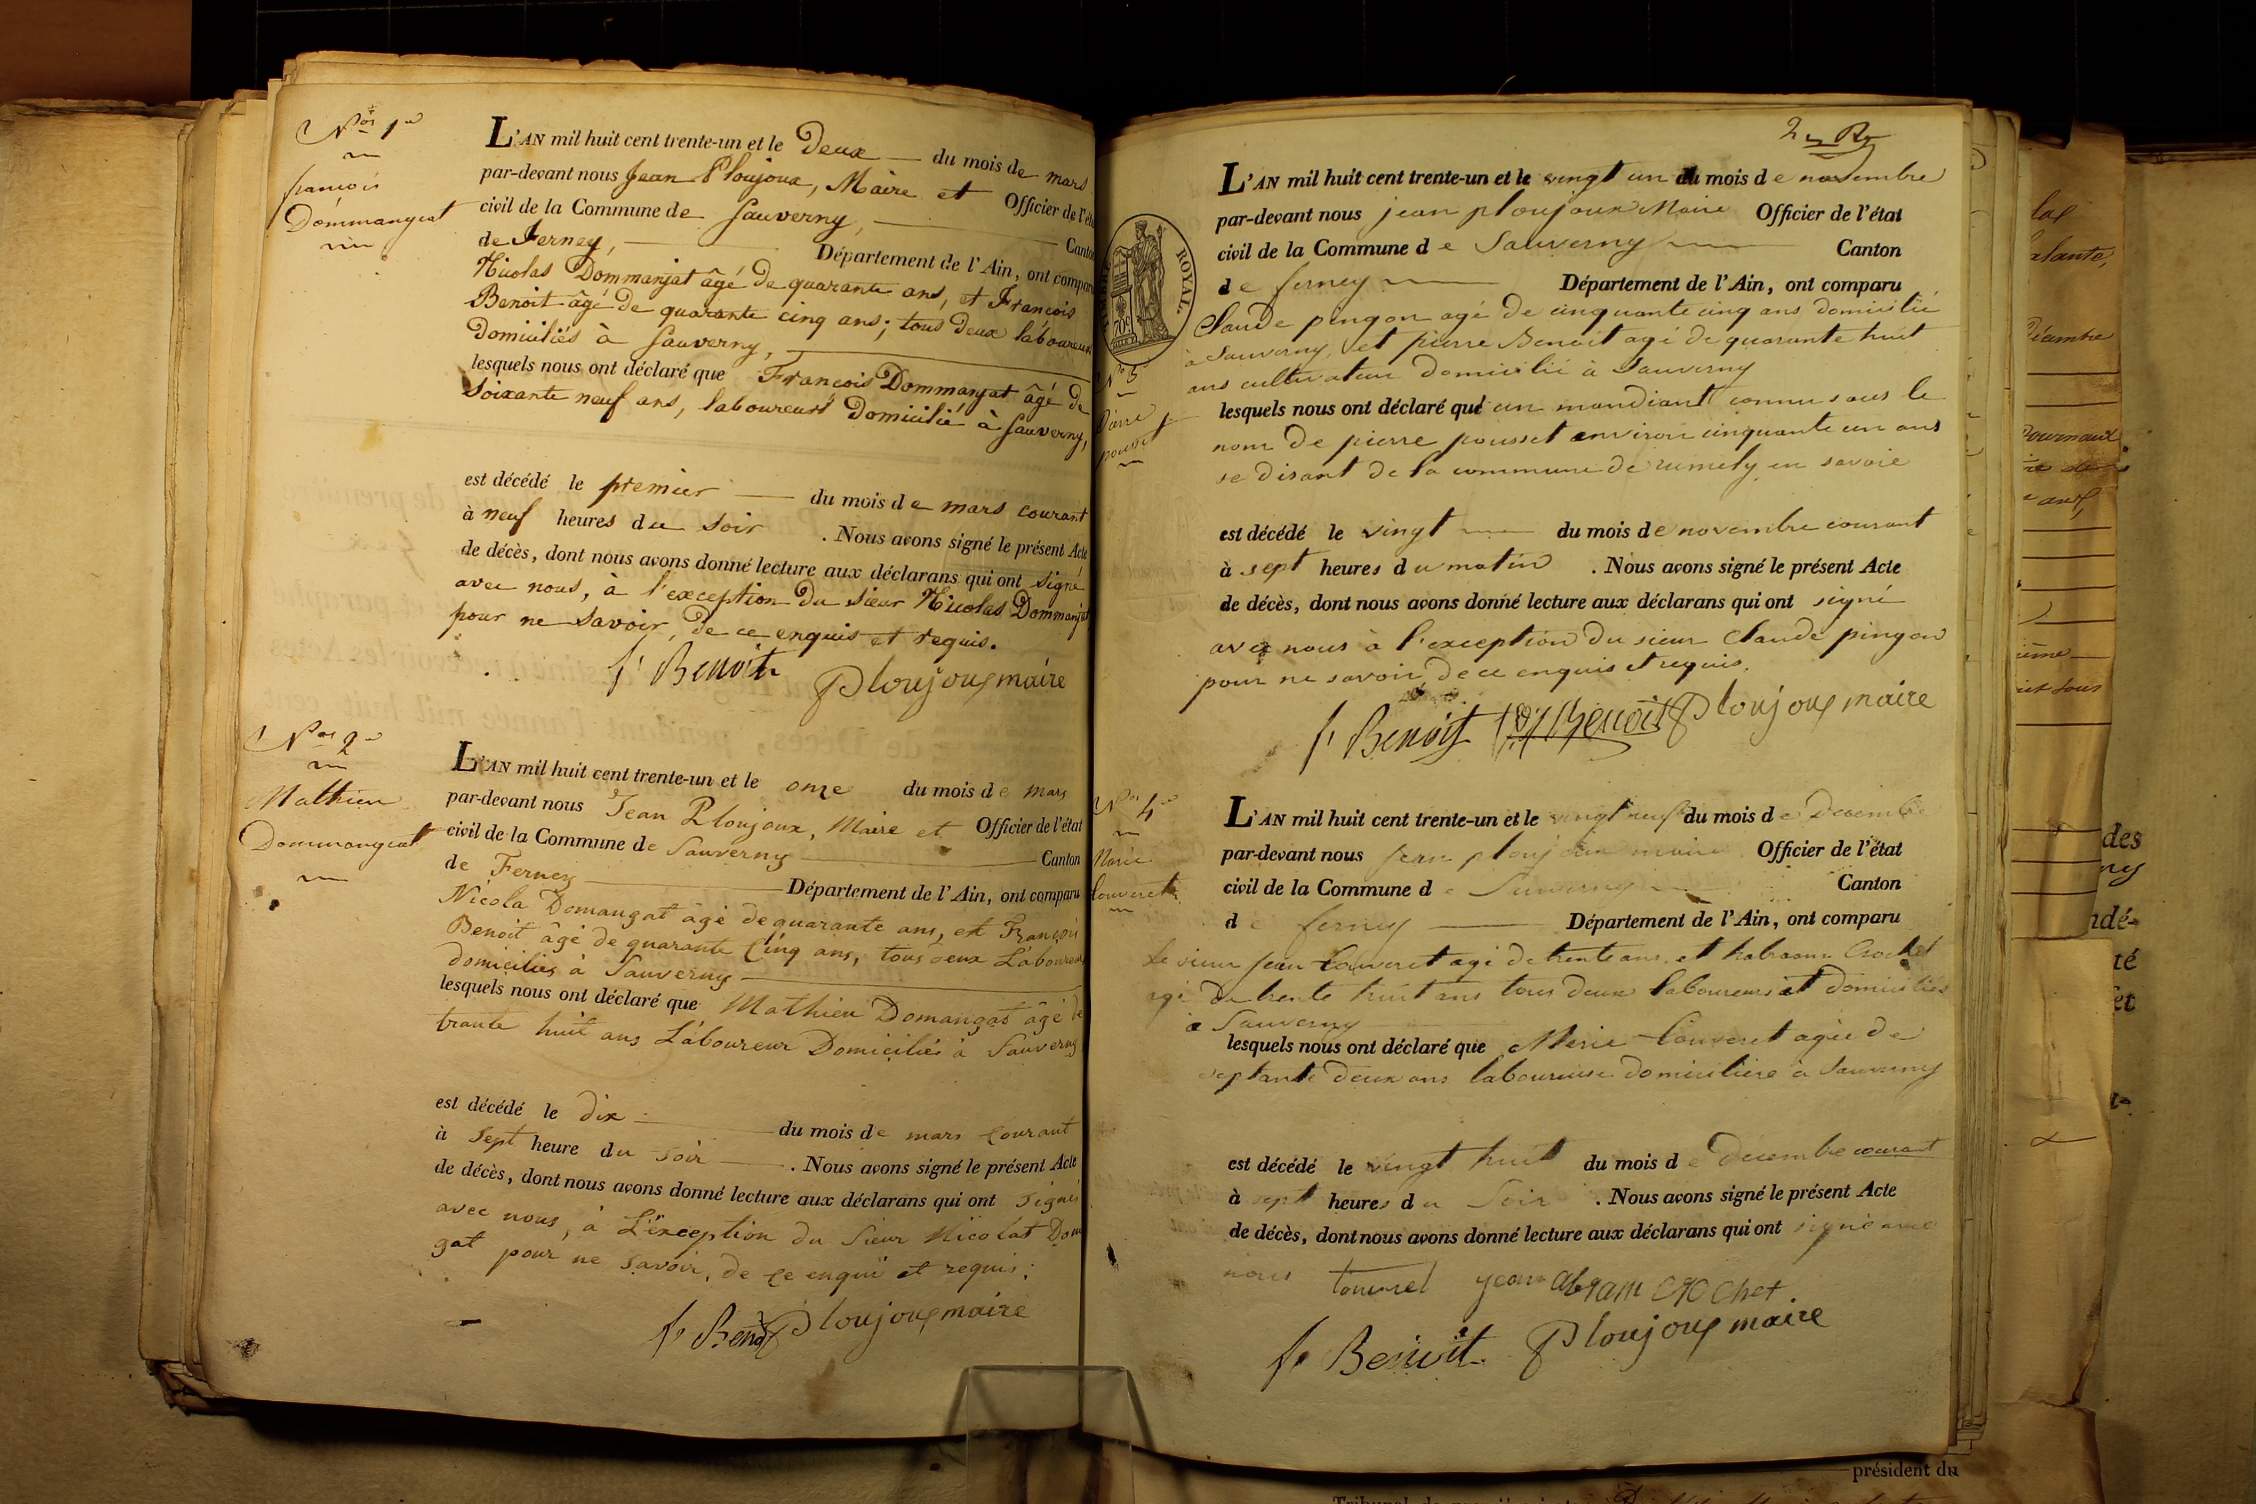 Nos 1er
françois
Dommangeat
L'AN mil huit cent trente-un et le Deux du mois de mars
par-devant nous Jean Ploujoux, Maire et Officier de l'éta
civil de la Commune de Sauverny, Canton
de Ferney, Département de l'Ain, ont comparu
Nicolas Dommanjat âgé de quarante ans, et François
Benoit âgé de quarante cinq ans; tous deux laboureurs
Domiciliés à Sauverny,
lesquels nous ont déclaré que François Dommanjat âgé de
Soixante neuf ans, laboureur Domicilié à Sauverny,
est décédé le premier du mois de mars courant
à neuf heures du soir . Nous avons signé le présent Acte
de décès, dont nous avons donné lecture aux déclarans qui ont signé
avec nous, à l'exception du sieur Nicolas Dommanjat
pour ne savoir, de ce enquis et requis.
f. Benoit Ploujoux maire
Nos 2e
Mathieu
Dommangeat
L'AN mil huit cent trente-un et le onze du mois de mars
par-devant nous Jean Ploujoux, Maire et Officier de l'état
civil de la Commune de Sauverny Canton
de Ferney Département de l'Ain, ont comparu
Nicola Domangat âgé de quarante ans, et François
Benoit âgé de quarante Cinq ans, tous deux Laboureur
domiciliés à Sauverny
lesquels nous ont déclaré que Mathieu Domangat âgé de
trante huit ans Laboureur Domiciliés à Sauverny
est décédé le dix du mois de mars courant
à Sept heure du soir . Nous avons signé le présent Acte
de décès, dont nous avons donné lecture aux déclarans qui ont signés
avec nous, à L'éxception du Sieur Nicolat Dom
gat pour ne savoir, de ce enqui et requis;
f. Benoit Ploujoux maire
ROYAL
70c
No 3
Pierre
pousset
L'AN mil huit cent trente-un et le vingt un du mois de novembre
par-devant nous jean ploujoux Maire Officier de l'état
civil de la Commune de Sauverny Canton
de ferney Département de l'Ain, ont comparu
Claude pingon agé de cinquante cinq ans domicilié
à Sauverny, et pierre Benoit agé de quarante huit
ans cultivateur domicilié à Sauverny
lesquels nous ont déclaré que un mandiant connu sous le
nom de pierre pousset environ cinquante un ans
se disant de la commune de rumely en savoie
est décédé le vingt du mois de novembre courant
à sept heures du matin . Nous avons signé le présent Acte
de décès, dont nous avons donné lecture aux déclarans qui ont signé
avec nous à l'exception du sieur Claude pingon
pour ne savoir de ce enquis et requis.
f. Benoit Benoit Ploujoux maire
Nos 4e
Marie
Touveret
L'AN mil huit cent trente-un et le vingt neuf du mois de Decembre
par-devant nous jean ploujoux maire Officier de l'état
civil de la Commune de Sauverny Canton
de ferney Département de l'Ain, ont comparu
Le sieur jean Touveret agé de trente ans et Crochet
agé de trente huit ans tous deux laboureurs et domiciliés
a Sauverny
lesquels nous ont déclaré que Marie Touveret agée de
septante deux ans laboureuse domicilière à Sauverny
est décédé le vingt huit du mois de Décembre courant
à sept heures du Soir . Nous avons signé le présent Acte
de décès, dont nous avons donné lecture aux déclarans qui ont signé avec
nous jean abram crochet
f. Benoit Ploujoux maire
des
président du